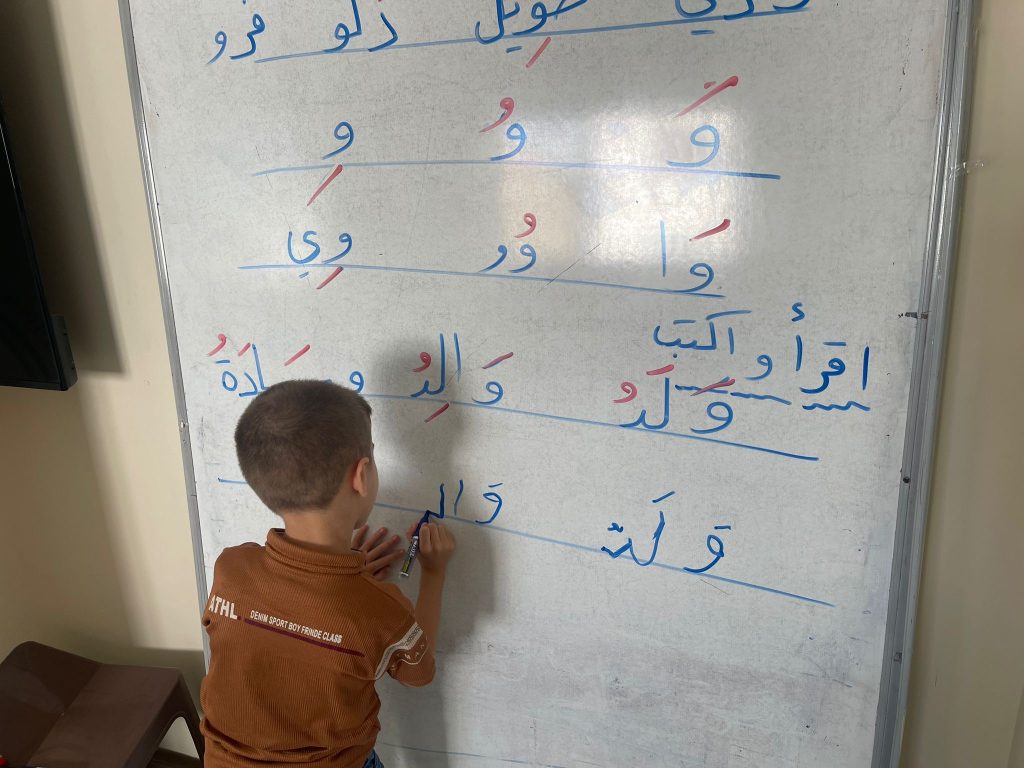 طويل دلو فرو
وَ وُ وِ
وَا وُو وِي
اقرأ و اكتب
وَلَدُ وَالِدُ وِسَادَةُ
وَ لَد وَ الد
ATHL DENIM SPORT BOY FRINDE CLASS